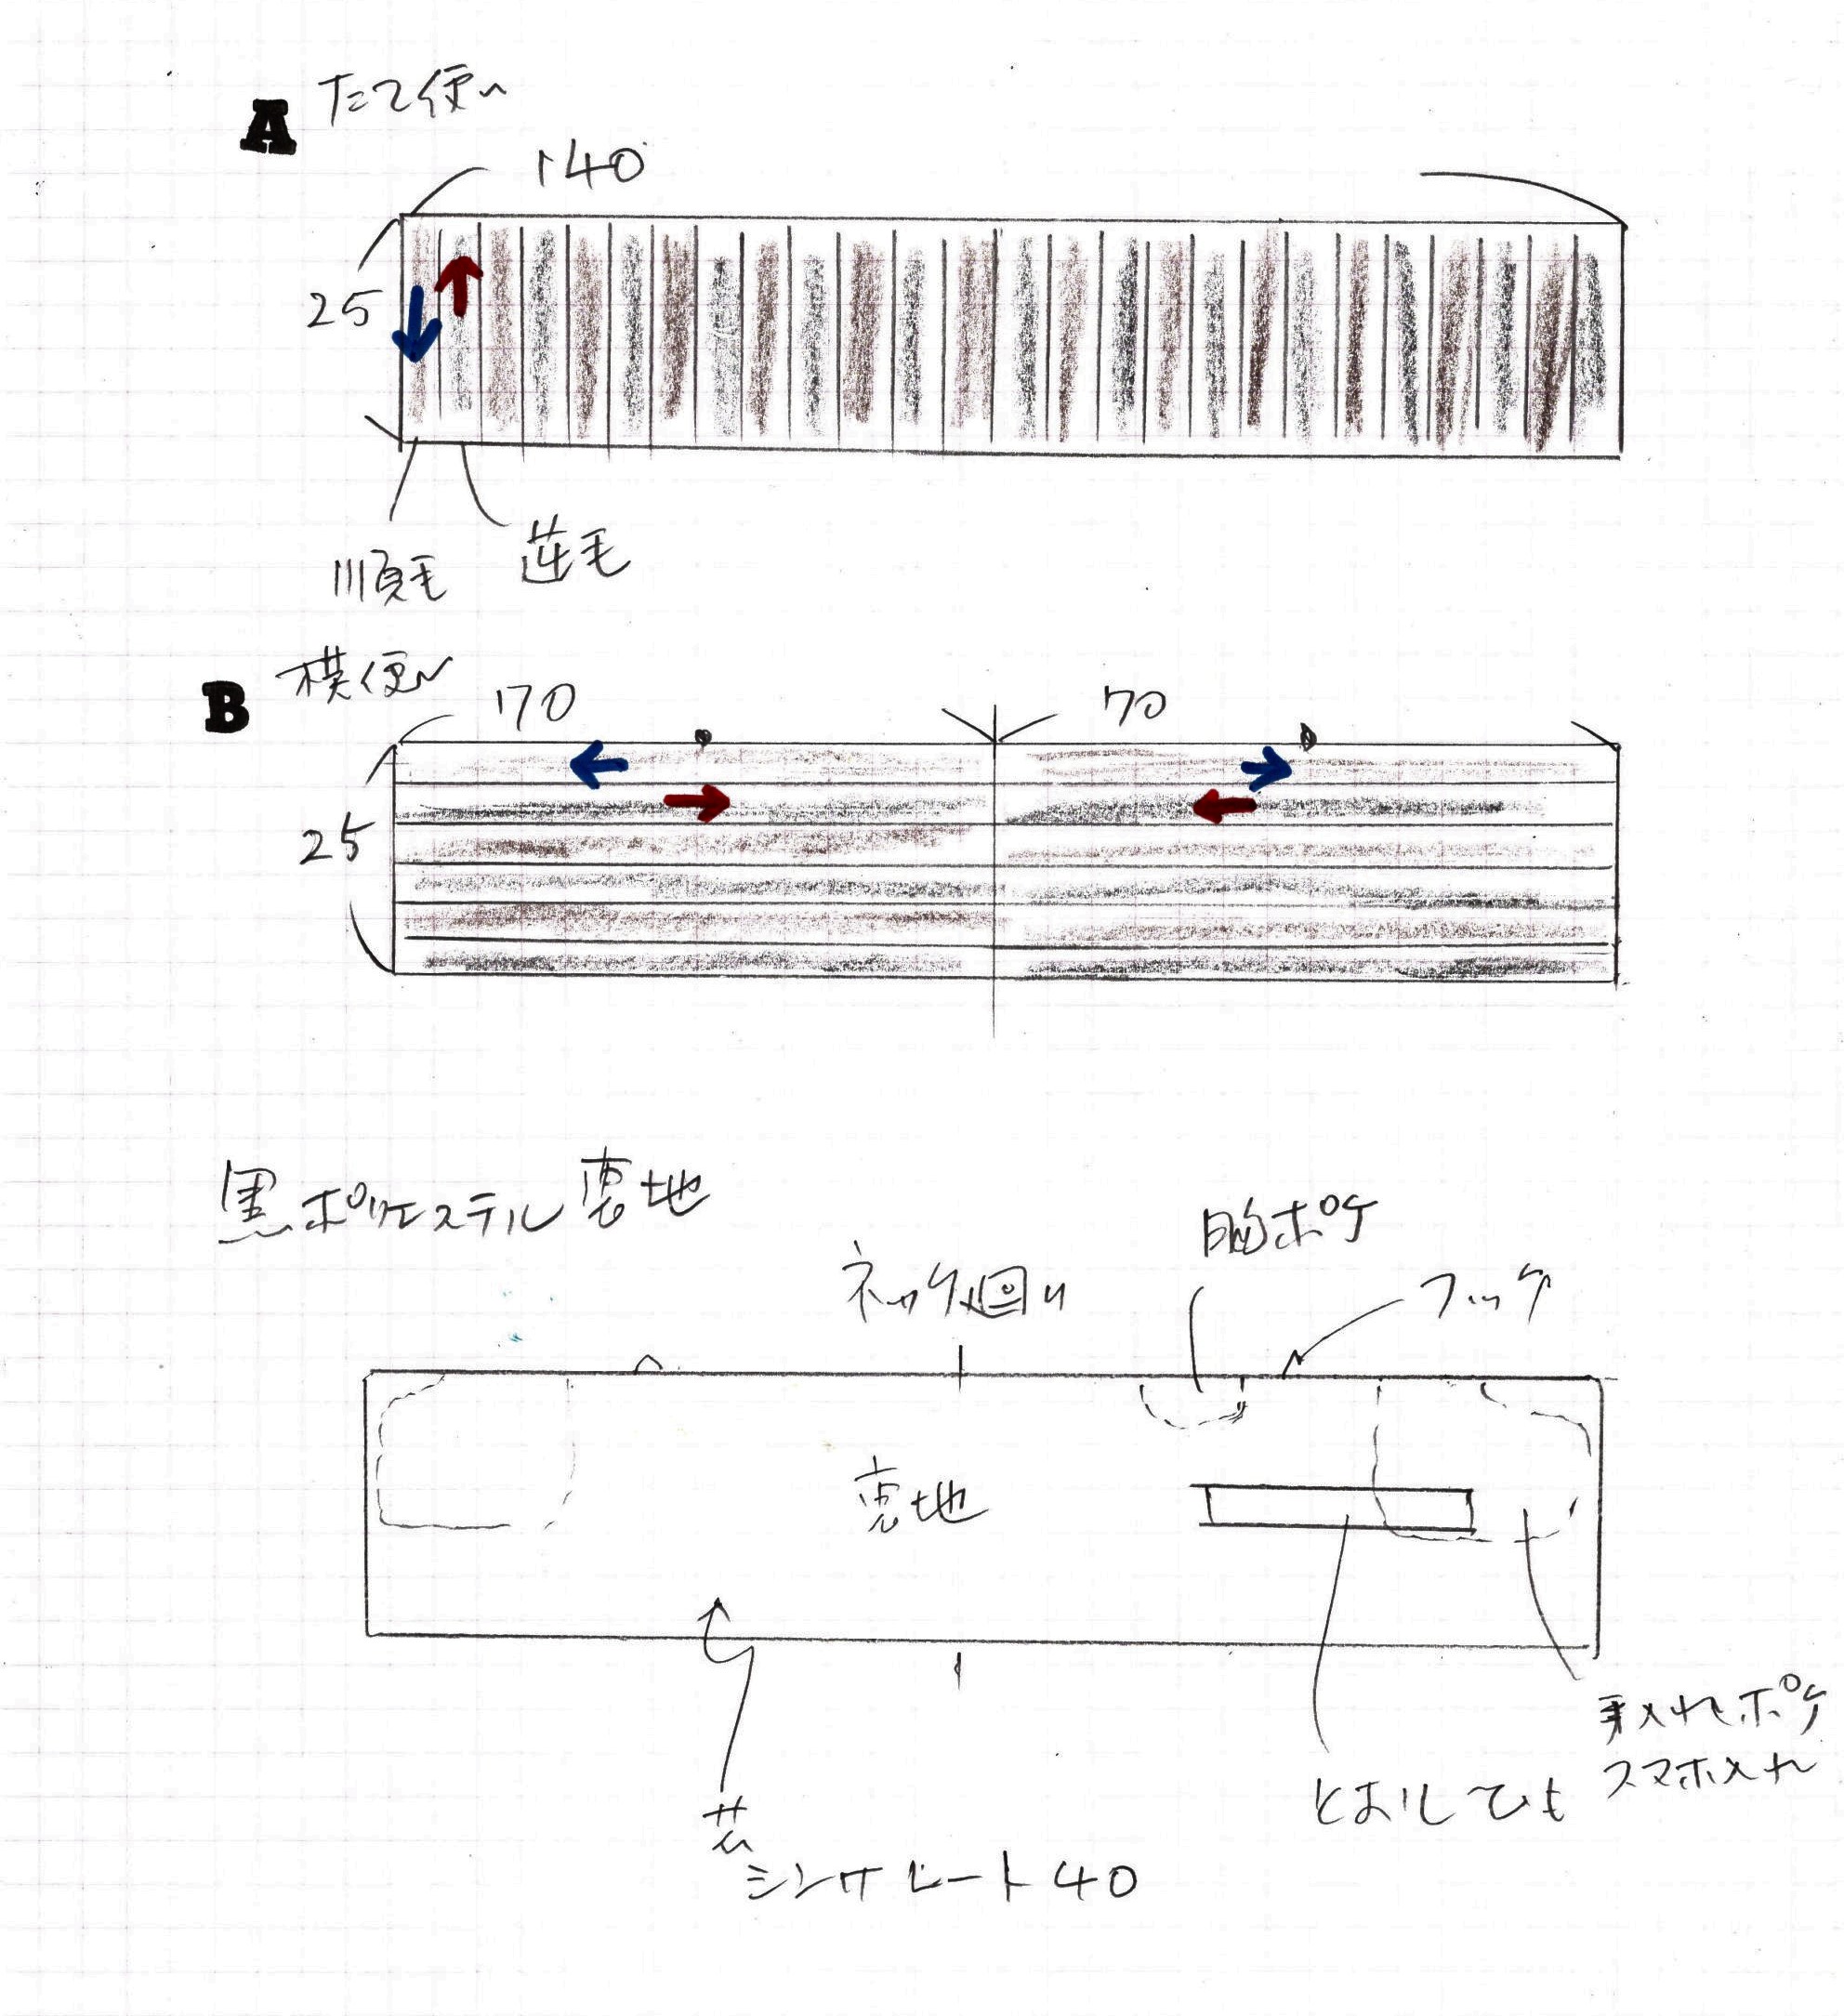 A たて使い
140
25
順毛 逆毛
B 横使い
170 70
25
黒ポリエステル裏地
胸ポケ
ネック廻り フック
裏地
手入れポケ
スマホ入れ
とおしてひも
芯
シンサレート40